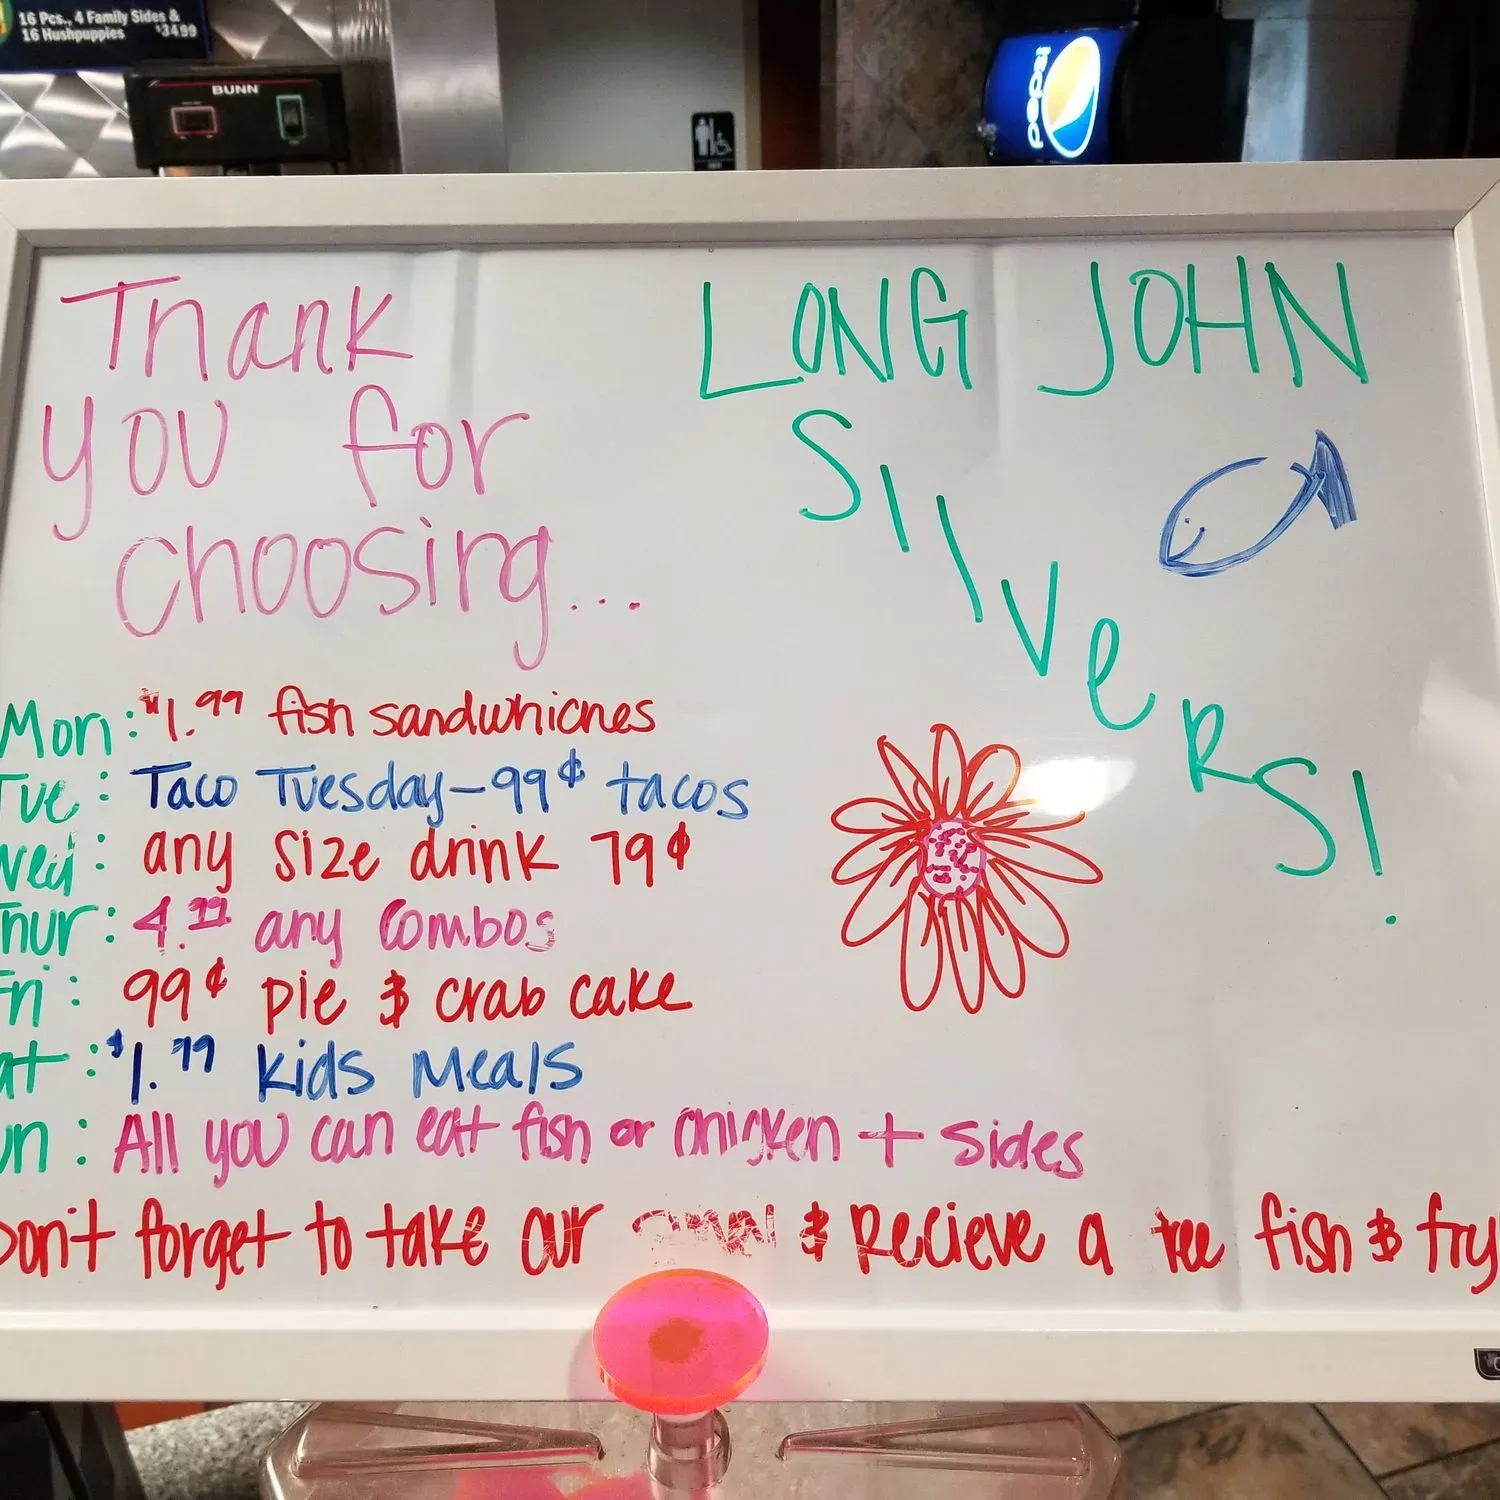 16 Pcs., 4 Family Sides &
16 Hushpuppies $34.99
BUNN
pepsi
Thank
you for
choosing...
LONG JOHN
SilveRS!
Mon: $1.99 fish sandwhicnes
Tue: Taco Tuesday-99¢ tacos
Wed: any size drink 79¢
Thur: 4.99 any Combos
Fri: 99¢ pie & crab cake
at: $1.99 kids Meals
un: All you can eat fish or chicken + sides
Don't forget to take our & Recieve a free fish & fry